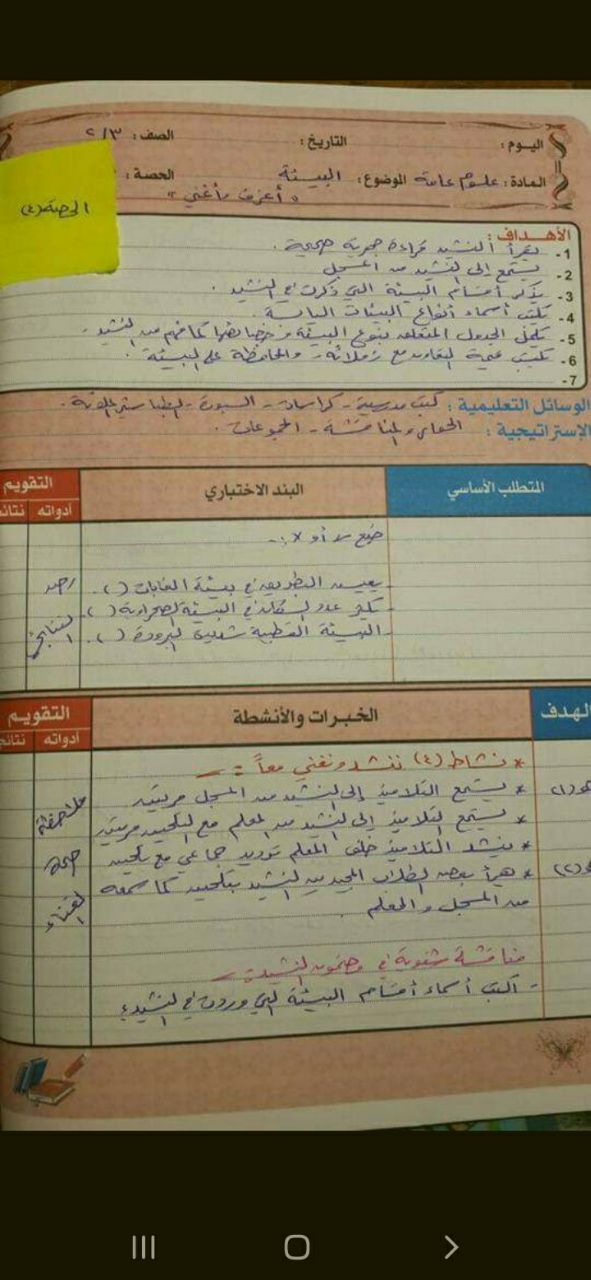 اليوم: التاريخ: الصف: ٢/٣
المادة: علوم عامة الموضوع: البيئة الحصة:
" أعزف وأغني "
الحصة (٤)
الأهداف:
1- يقرأ النشيد قراءة جهرية صحيحة.
2- يستمع إلى النشيد من المسجل
3- يذكر أقسام البيئة التي ذكرت في النشيد.
4- يكتب أسماء أنواع البيئات اليابسة.
5- يكمل الجدول المتعلق بتنوع البيئة وخصائصها كما فهم من النشيد.
6- يكتب عن التعاون مع زملائه والمحافظة على البيئة.
7-
الوسائل التعليمية: كتب مدرسية - كراسات - السبورة - الطباشير الملونة.
الإستراتيجية: الحوار والمناقشة - المجموعات.
المتطلب الأساسي البند الاختباري التقويم
أدواته نتائجه
ضع √ أو × :-
يعيش البطريق في بيئة الغابات ( ). رصد
يكثر عدد السكان في البيئة الصحراوية ( ). النتائج
البيئة القطبية شديدة البرودة ( ).
الهدف الخبرات والأنشطة التقويم
أدواته نتائجه
* نشاط (٤) ننشد ونغني معاً :-
* يستمع التلاميذ إلى النشيد من المسجل مرتين ملاحظة
* يستمع التلاميذ إلى النشيد من المعلم مع التلحين مرتين
* ينشد التلاميذ خلف المعلم ترديد جماعي مع تلحين صحة
* يقرأ بعض الطلاب المجيدين النشيد بتلحين كما سمعه
من المسجل والمعلم. الغناء
مناقشة شفوية في مضمون النشيد :-
- اكتب أسماء أقسام البيئة التي وردت في النشيد؟